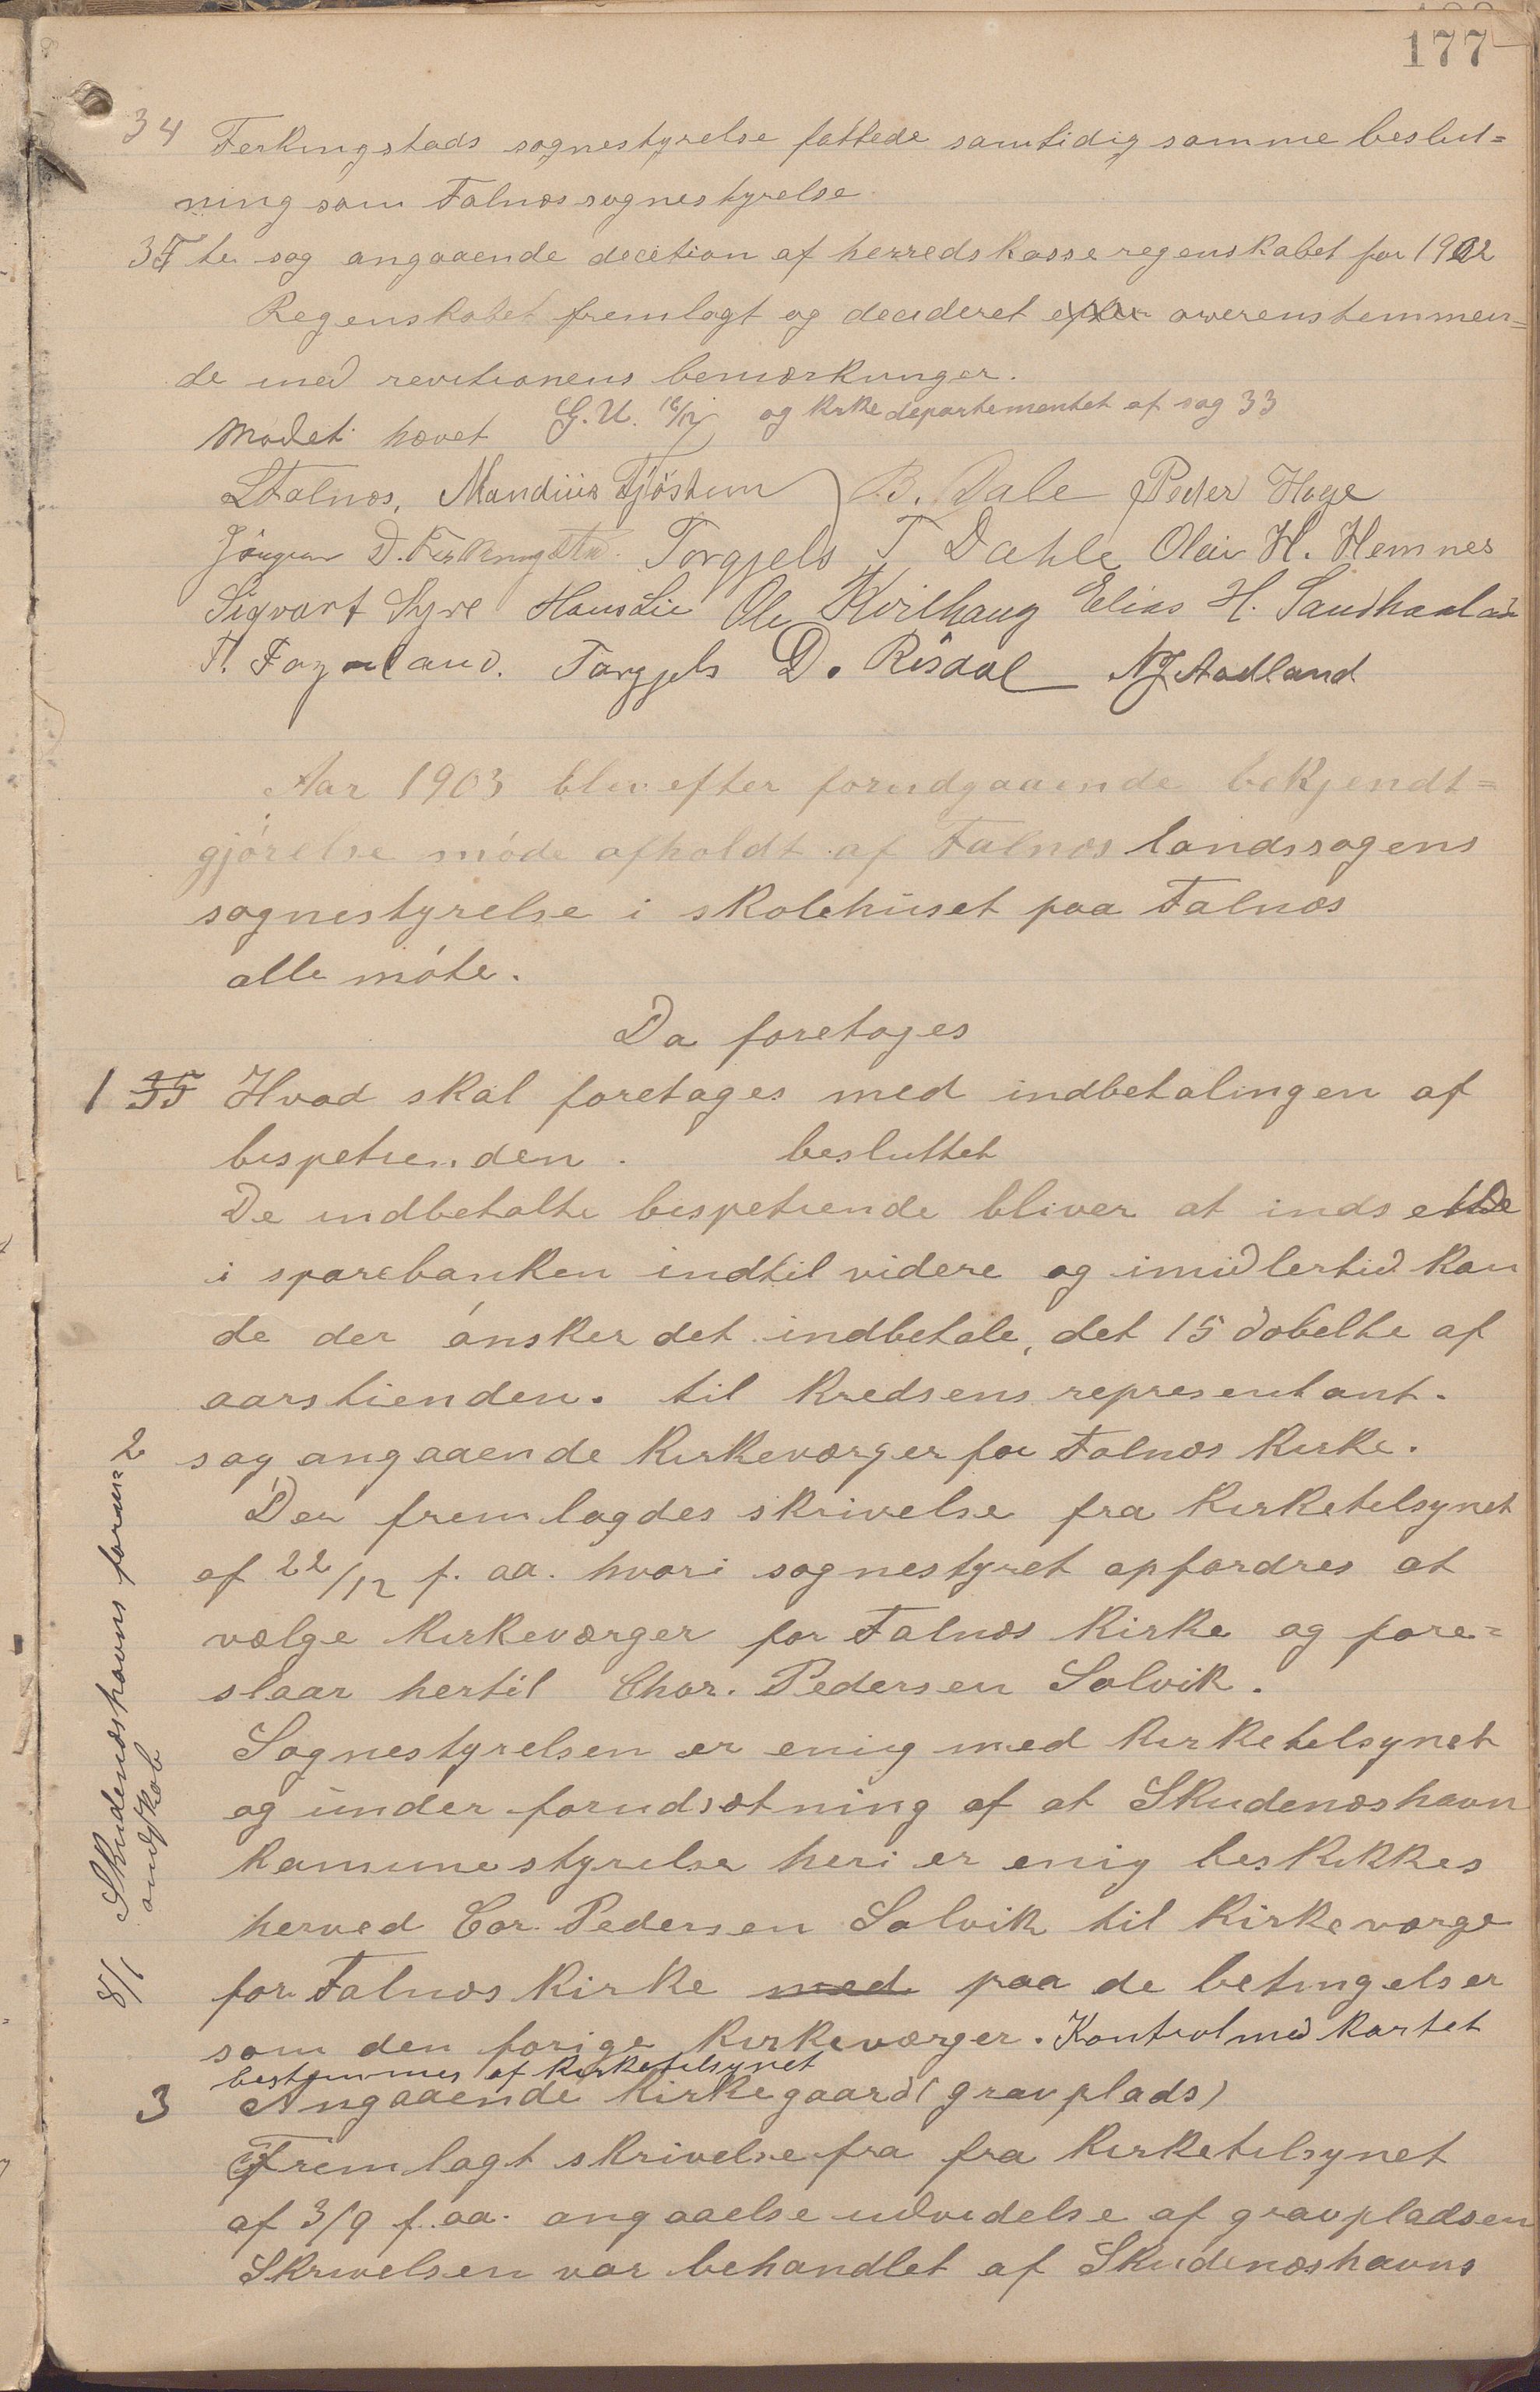 177
34 Ferkingstads sognestyrelse fattede samtidig samme beslut=
ning som Falnæs sognestyrelse
35 te sag angaaende decition af herredskasseregenskabet for 1902
Regenskabet fremlagt og decideret overenstemmen=
de med revitionens bemærkninger.
Mødet hævet G.U. 16/12 og kirkedepartementet af sag 33
L Falnæs, Mandius Tjöstem B. Dale Peder Hage
Jörgen D. Ferkingstad. Torgjels T Dahle Olai H. Hemnes
Sigvart Syre Hans Lie Ole Kvilhaug Elias H. Sandhaaland
T. Fagerland. Torgjels D. Risdal NJ Stadland
Aar 1903 blev efter forudgaaende bekjendt=
gjörelse möde afholdt af Falnæs landssogens
sognestyrelse i skolehuset paa Falnæs
alle möte.
Da foretoges
1 35 Hvad skal foretages med indbetalingen af
bispetienden. besluttet
De indbetalte bispetiende bliver at indsette
i sparebanken indtil videre og imidlertid kan
de der ónsker det indbetale, det 15 dobelte af
aarstienden. til kredsens representant.
2 sag angaaende kirkeværger for Falnæs kirke.
Der fremlagdes skrivelse fra kirketilsynet
af 22/12 f. aa. hvori sognestyret opfordres at
vælge kirkeværger for Falnæs kirke og fore=
slaar hertil Chor. Pedersen Solvik.
Sognestyrelsen er enig med kirketilsynet
og under forudsætning af at Skudenæshavn
kamunestyrelse heri er enig beskikkes
herved Cor. Pedersen Solvik til kirkeværge
for Falnæs kirke med paa de betingelser
som den forige kirkeværger. Kontrol med kartet
bestemmes af kirketilsynet
3 Angaaende kirkegaard (gravplads)
Fremlagt skrivelse fra fra kirketilsynet
af 3/9 f. aa. angaaelse udvidelse af gravpladsen
Skrivelsen var behandlet af Skudenæshavns
8/1 Skudenæshavns